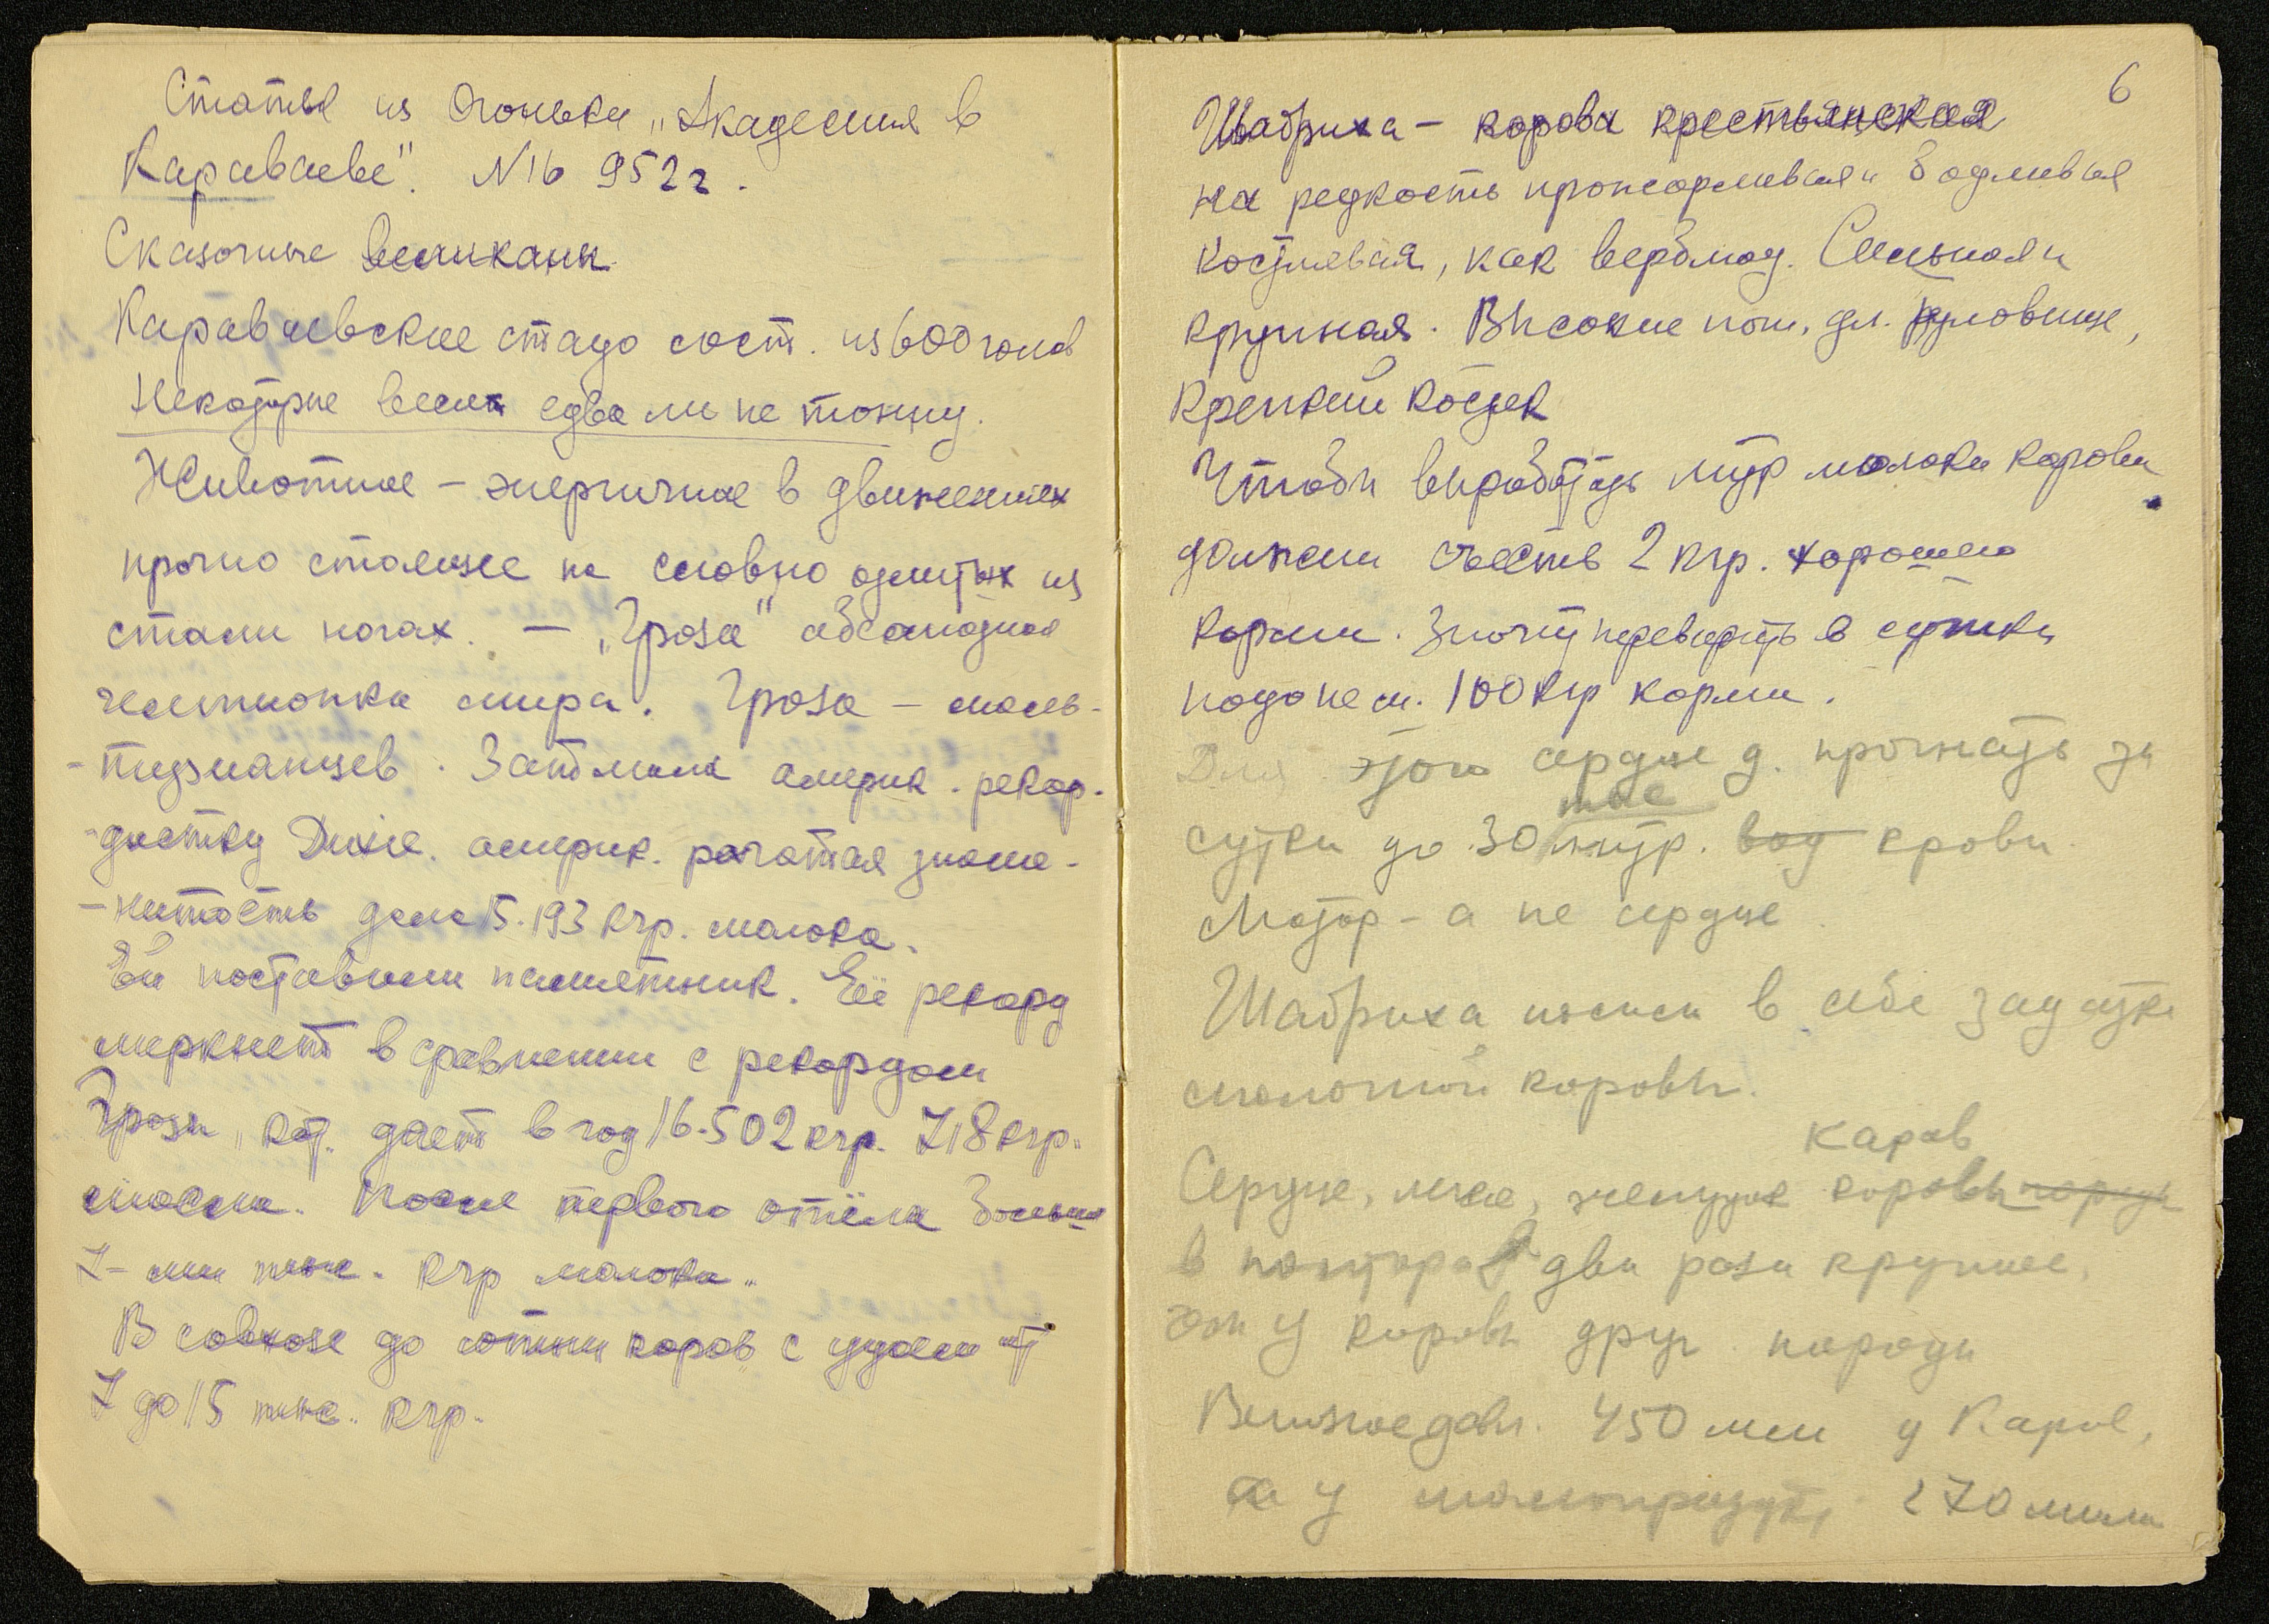 Статья из Огонька „Академия в
Караваеве". N16 952 г.
Сказочные великаны
Караваевское стадо сост. из 600 голов
Некоторые весят едва ли не тонну.
Животное – энергичное в движениях
прочно стоящее на словно отлитых из
стали ногах. — „Гроза" абсолютная
чемпионка мира. Гроза –
Затмила америк. рекор-
-дистку америк. рогатая знаме-
-нитость дала 15.193 кгр. молока.
Ей поставили памятник. Её рекорд
меркнет в сравнении с рекордом
Грозы, кот. дает в год 16.502 кгр. 718 кгр.
масла. После первого отёла больше
7-ми тыс. кгр молока.
В совхозе до сотни коров с удоем от
7 до 15 тыс. кгр.
6
Шабриха – корова крестьянская
на редкость прожорливая и бодливая
костлявая, как верблюд. Сильная и
крупная. Высокие ноги, дл. туловище,
крепкий костяк
Чтобы выработать литр молока корова
должна съесть 2 кгр. хорошего
корма. Значит переварить в сутки
надо не м. 100 кгр корма.
Для этого сердце д. прогнать за
сутки до 30 тыс литр. вод крови.
Мотор – а не сердце.
Шабриха носила в себе задатки
молочной коровы.
Карав
Сердце, легкие, желудок коровы породы
в полтора два раза крупнее,
чем у коровы друг. породы
Венозное давл. 450 мм у Карав,
а у 270 мм